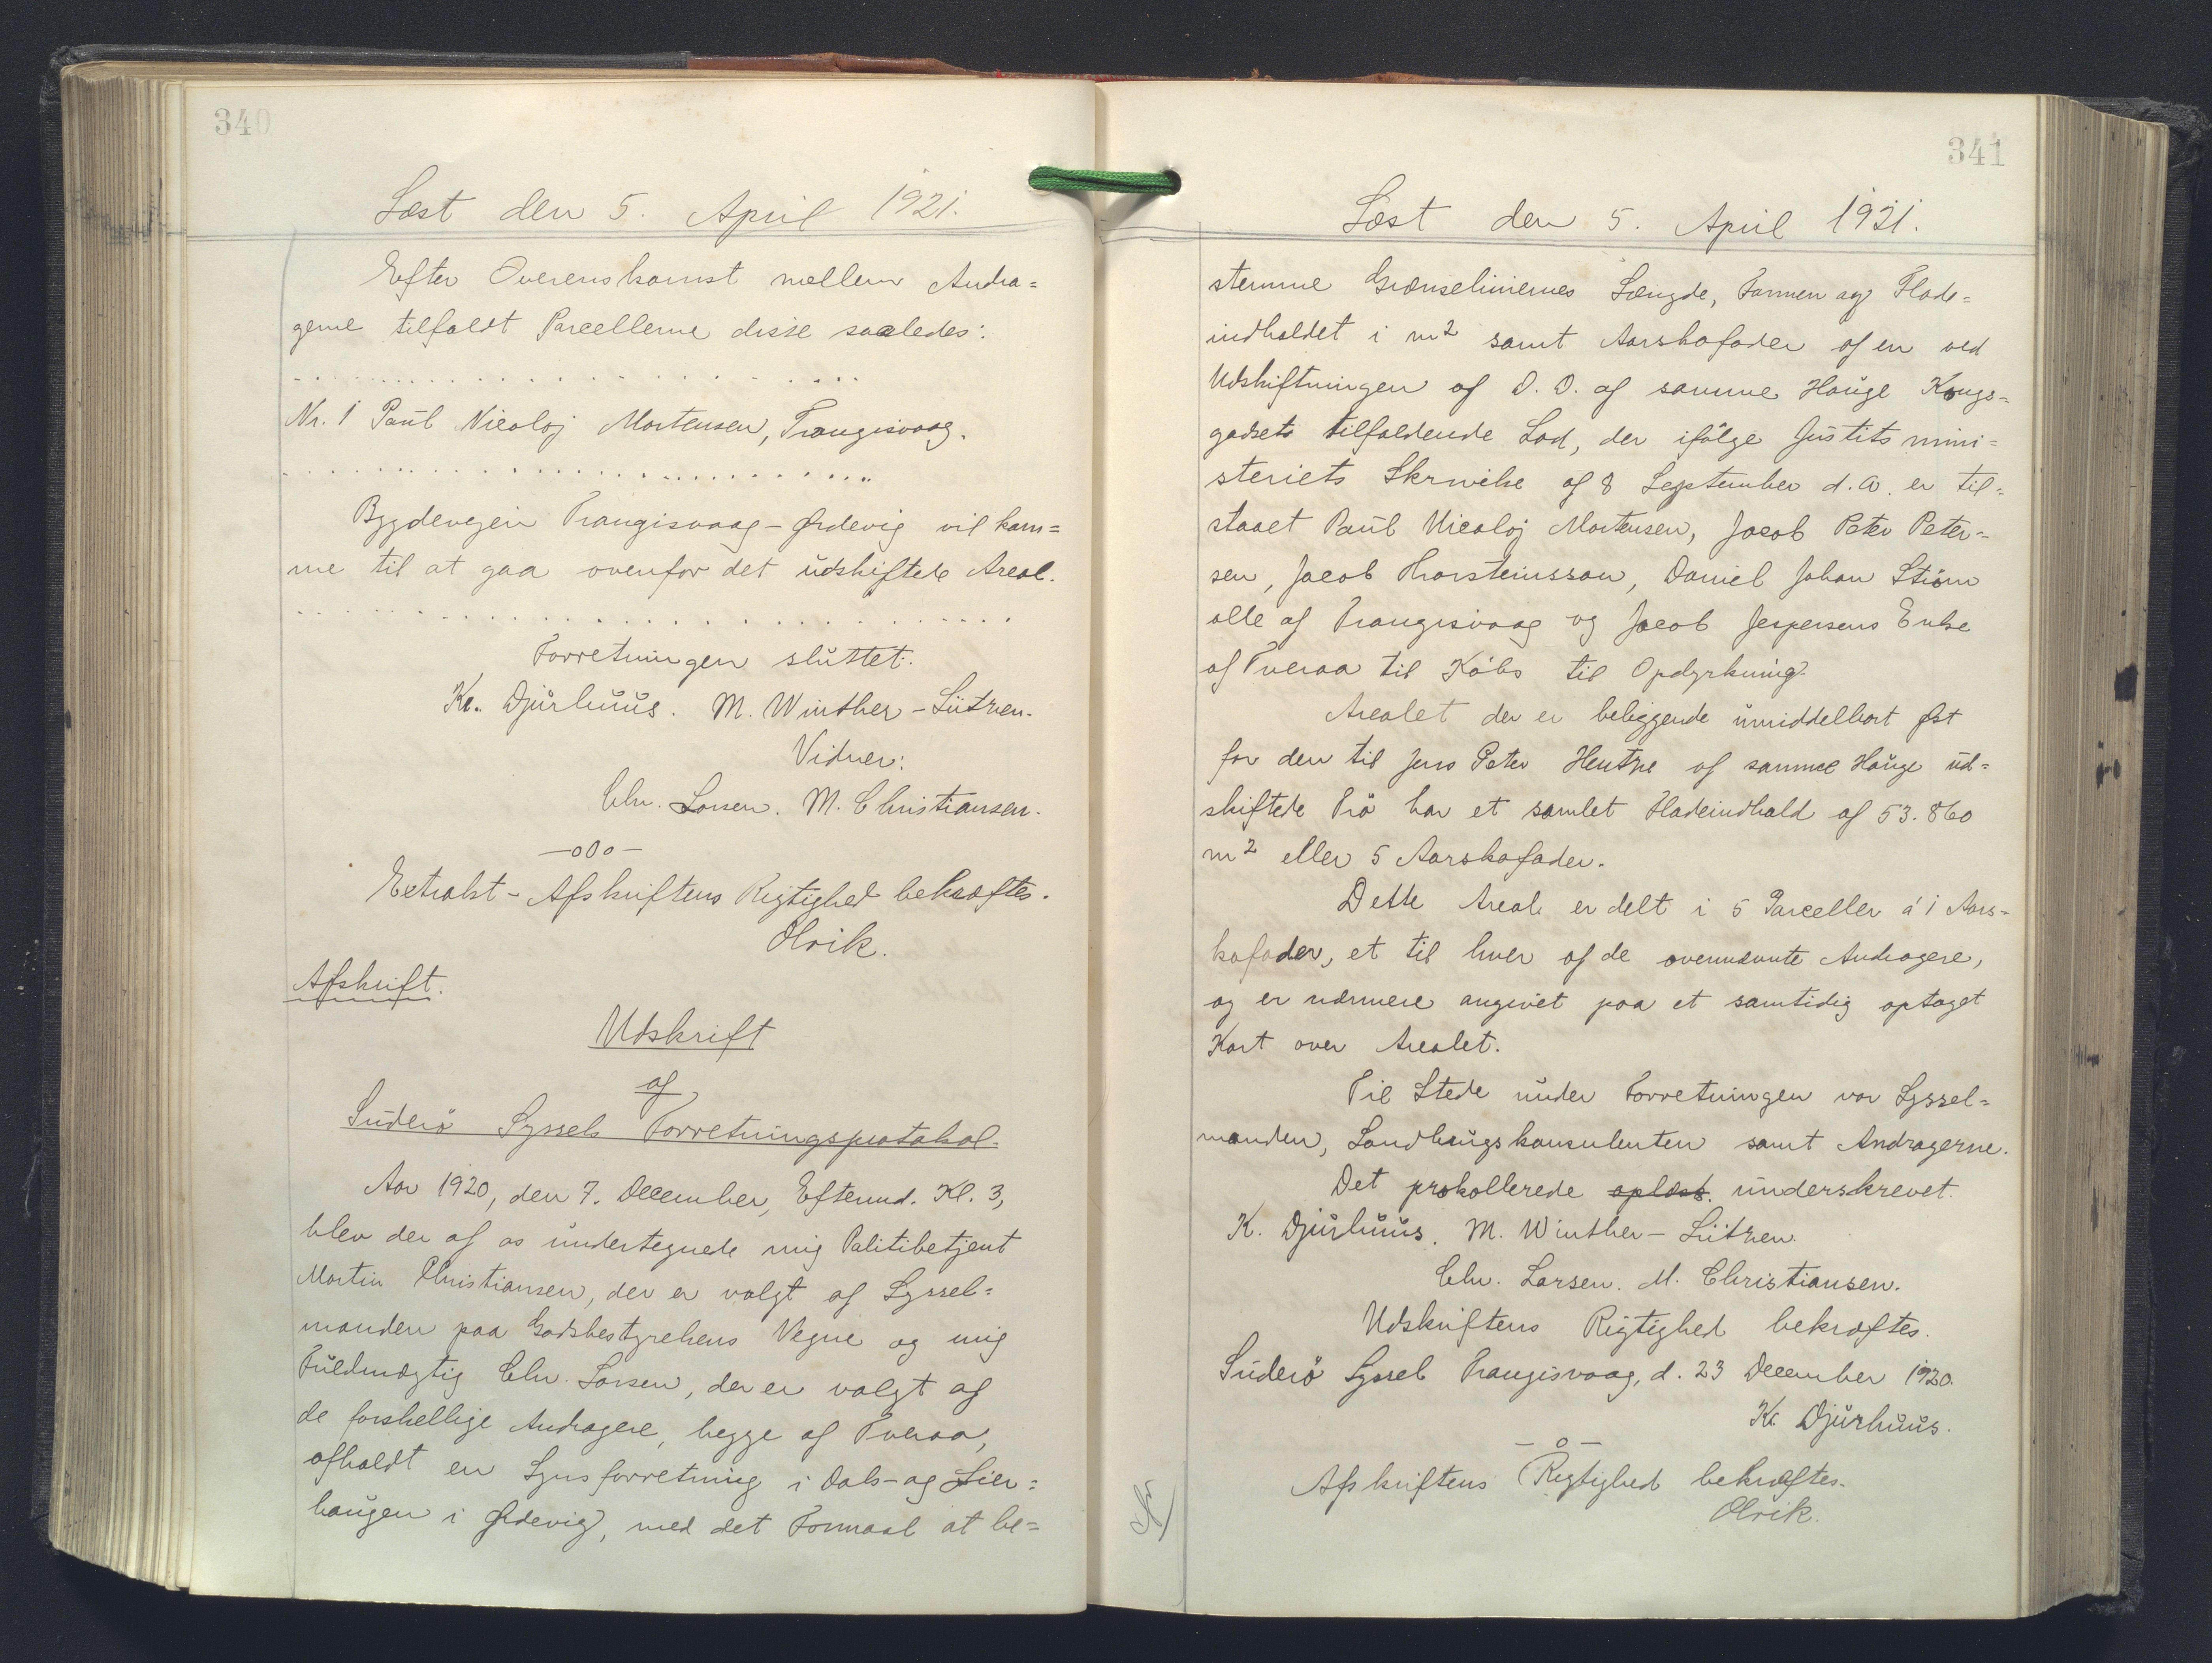 340
Læst den 5. April 1921.
Efter Overenskomst mellem Andra=
gerne tilfaldt Parcellerne disse saaledes:
. . . . . . . . . . . . . . . . . . . .
Nr. 1 Paul Nicolaj Mortensen, Trangisvaag.
. . . . . . . . . . . . . . . . . . . .
Bygdevejen Trangisvaag - Ørdevig vil kom=
me til at gaa ovenfor det udskiftede Areal.
. . . . . . . . . . . . . . . . . . . .
Forretningen sluttet.
Kr. Djurhuus. M. Winther - Lützen.
Vidner:
Chr. Larsen. M. Christiansen.
—o0o—
Extrakt - Afskriftens Rigtighed bekræftes.
Olrik.
Afskrift.
Udskrift
af
Suderø Syssels Forretningsprotokol.
Aar 1920, den 7. December, Eftermd. Kl. 3,
blev der af os undertegnede mig Politibetjent
Martin Christiansen, der er valgt af Syssel=
manden paa Godsbestyrelsens Vegne og mig
Fuldmægtig Chr. Larsen, der er valgt af
de forskellige Andragere, begge af Tveraa,
afholdt en Synsforretning i Dals- og Lier=
haugen i Ørdevig, med det Formaal at be=
341
Læst den 5. April 1921.
stemme Grænseliniernes Længde, Formen og Flade=
indholdet i m² samt Aarskofoder af en ved
Udskiftningen af D. D. af samme Hauge Kongs=
godsets tilfaldende Lod, der ifølge Justitsmini=
steriets Skrivelse af 8 September d. A. er til=
staaet Paul Nicolaj Mortensen, Jacob Peter Peter=
sen, Jacob Thorsteinsson, Daniel Johan Strøm
alle af Trangisvaag og Jacob Jespersens Enke
af Tveraa til Købs til Opdyrkning.
Arealet der er beliggende umiddelbart Øst
for den til Jens Peter Hentze af samme Hauge ud=
skiftede Trø har et samlet Fladeindhold af 53.860
m² eller 5 Aarskofoder.
Dette Areal er delt i 5 Parceller á 1 Aars=
kofoder, et til hver af de ovennævnte Andragere,
og er nærmere angivet paa et samtidig optaget
Kort over Arealet.
Til Stede under Forretningen var Syssel=
manden, Landbrugskonsulenten samt Andragerne.
Det prokollerede oplæst. underskrevet.
K. Djurhuus. M. Winther - Lützen.
Chr. Larsen. M. Christiansen.
Udskriftens Rigtighed bekræftes.
Suderø Syssel Trangisvaag, d. 23 December 1920.
Kr. Djurhuus.
—o—
Afskriftens Rigtighed bekræftes.
Olrik.